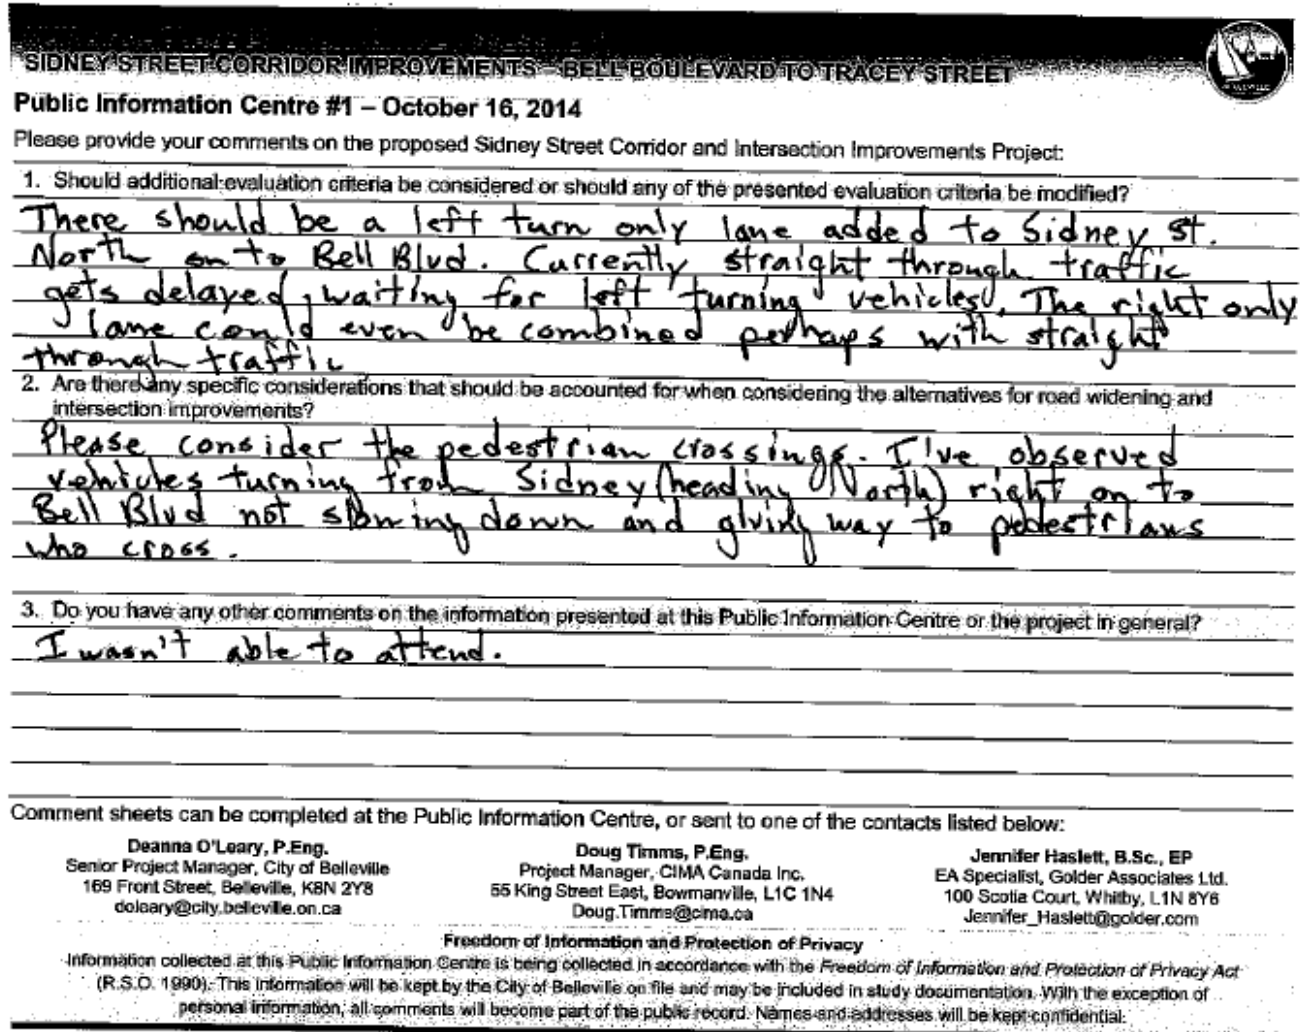 SIDNEY STREET CORRIDOR IMPROVEMENTS – BELL BOULEVARD TO TRACEY STREET
Public Information Centre #1 – October 16, 2014
Please provide your comments on the proposed Sidney Street Corridor and Intersection Improvements Project:
1. Should additional evaluation criteria be considered or should any of the presented evaluation criteria be modified?
There should be a left turn only lane added to Sidney St.
North on to Bell Blvd. Currently straight through traffic
gets delayed, waiting for left turning vehicles. The right only
lane could even be combined perhaps with straight
through traffic
2. Are there any specific considerations that should be accounted for when considering the alternatives for road widening and
intersection improvements?
Please consider the pedestrian crossings. I've observed
vehicles turning from Sidney (heading North) right on to
Bell Blvd not slowing down and giving way to pedestrians
who cross.
3. Do you have any other comments on the information presented at this Public Information Centre or the project in general?
I wasn't able to attend.
Comment sheets can be completed at the Public Information Centre, or sent to one of the contacts listed below:
Deanna O'Leary, P.Eng.
Senior Project Manager, City of Belleville
169 Front Street, Belleville, K8N 2Y8
doleary@city.belleville.on.ca
Doug Timms, P.Eng.
Project Manager, CIMA Canada Inc.
55 King Street East, Bowmanville, L1C 1N4
Doug.Timms@cima.ca
Jennifer Haslett, B.Sc., EP
EA Specialist, Golder Associates Ltd.
100 Scotia Court, Whitby, L1N 8Y6
Jennifer_Haslett@golder.com
Freedom of Information and Protection of Privacy
Information collected at this Public Information Centre is being collected in accordance with the Freedom of Information and Protection of Privacy Act
(R.S.O. 1990). This information will be kept by the City of Belleville on file and may be included in study documentation. With the exception of
personal information, all comments will become part of the public record. Names and addresses will be kept confidential.